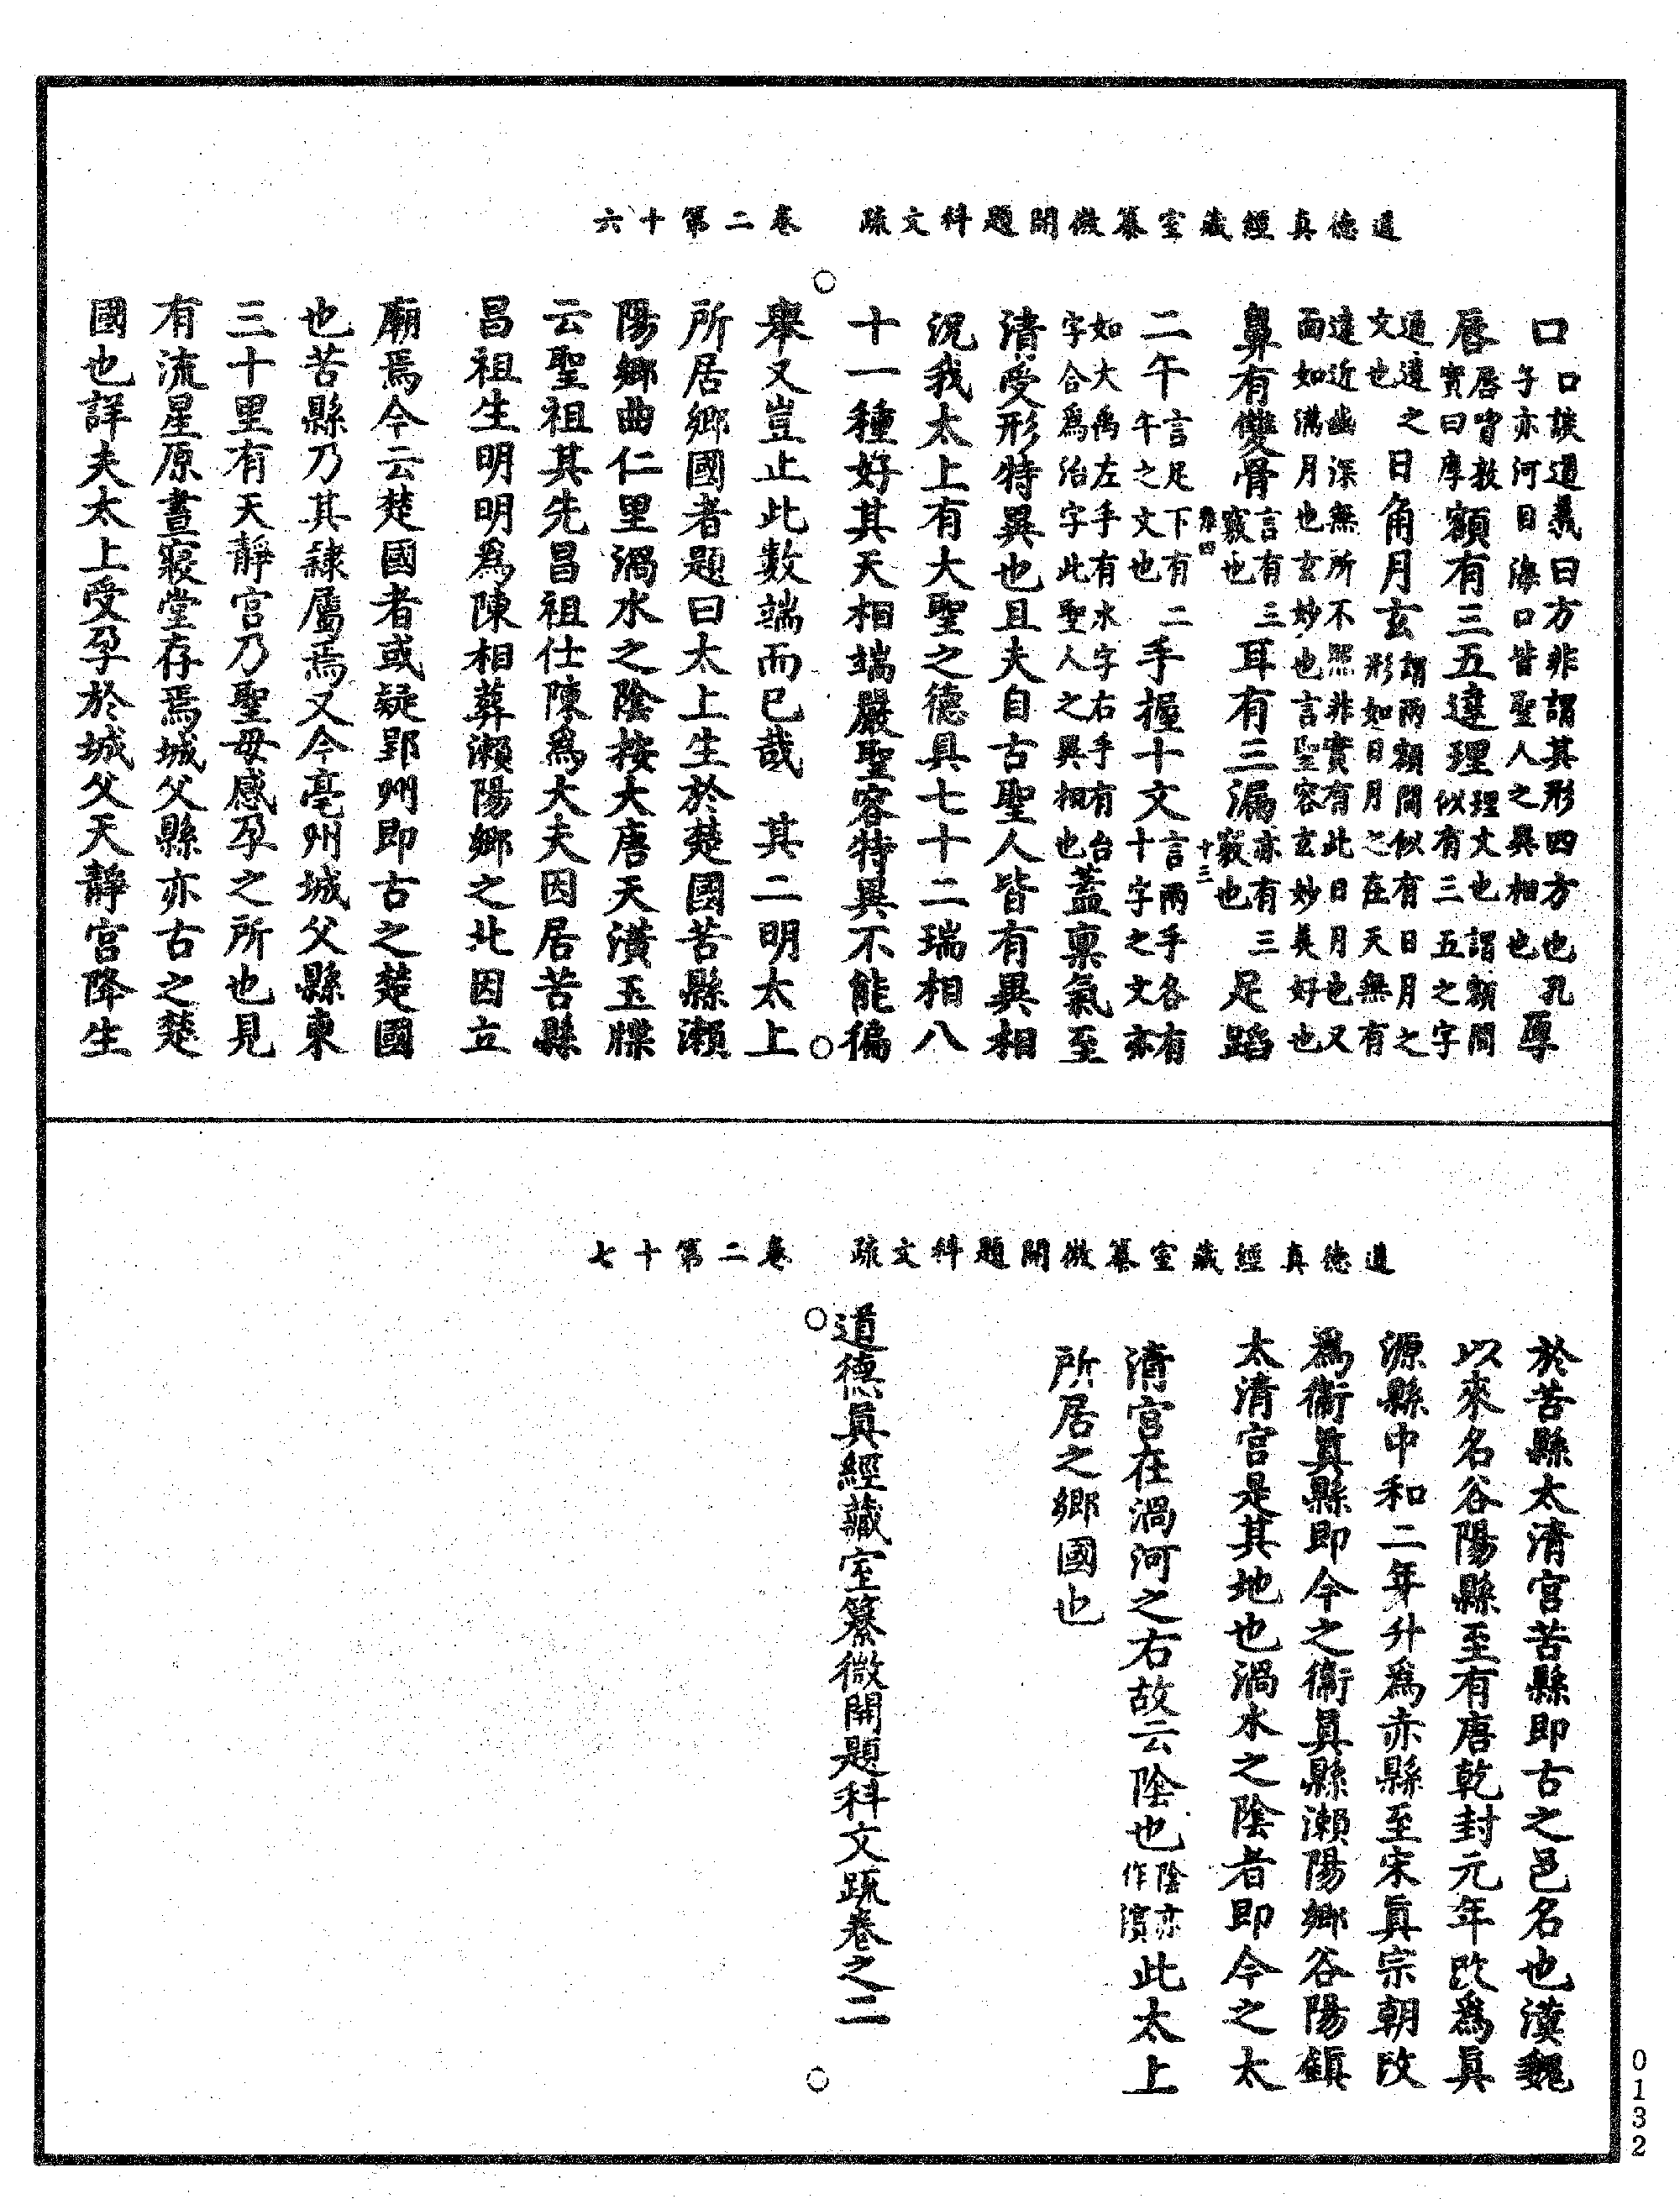 道德真經藏室纂微開題科文疏　卷二第十六
口口談道義曰方非謂其形四方也孔子亦河目海口皆聖人之異相也厚
脣脣皆敦實曰厚額有三五達理理文也謂額間似有三五之字
通達之文也日角月玄謂兩額間似有日月之形如日月之在天無有
遠近幽深無所不照非實有此日月也又面如滿月也玄妙也言聖容玄妙美好也
鼻有雙骨言有三竅也耳有三漏亦有三竅也足蹈
難四　十三
二午言足下有二午之文也手握十文言兩手各有十字之文亦
如大禹左手有水字右手有台字合為治字此聖人之異相也蓋稟氣至
清受形特異也且夫自古聖人皆有異相
況我太上有大聖之德具七十二瑞相八
十一種好其天相端嚴聖容特異不能徧
舉又豈止此數端而已哉　其二明太上
所居鄉國者題曰太上生於楚國苦縣瀨
陽鄉曲仁里渦水之陰按大唐天潢玉牒
云聖祖其先昌祖仕陳為大夫因居苦縣
昌祖生明明為陳相葬瀨陽鄉之北因立
廟焉今云楚國者或疑郢州即古之楚國
也苦縣乃其隸屬焉又今亳州城父縣東
三十里有天靜宮乃聖母感孕之所也見
有流星原晝寢堂存焉城父縣亦古之楚
國也詳夫太上受孕於城父天靜宮降生
道德真經藏室纂微開題科文疏　卷二第十七
於苦縣太清宮苦縣即古之邑名也漢魏
以來名谷陽縣至有唐乾封元年改為真
源縣中和二年升為赤縣至宋真宗朝改
為衛真縣即今之衛真縣瀨陽鄉谷陽鎮
太清宮是其地也渦水之陰者即今之太
清宮在渦河之右故云陰也陰亦作濱此太上
所居之鄉國也
道德真經藏室纂微開題科文疏卷之二
0132